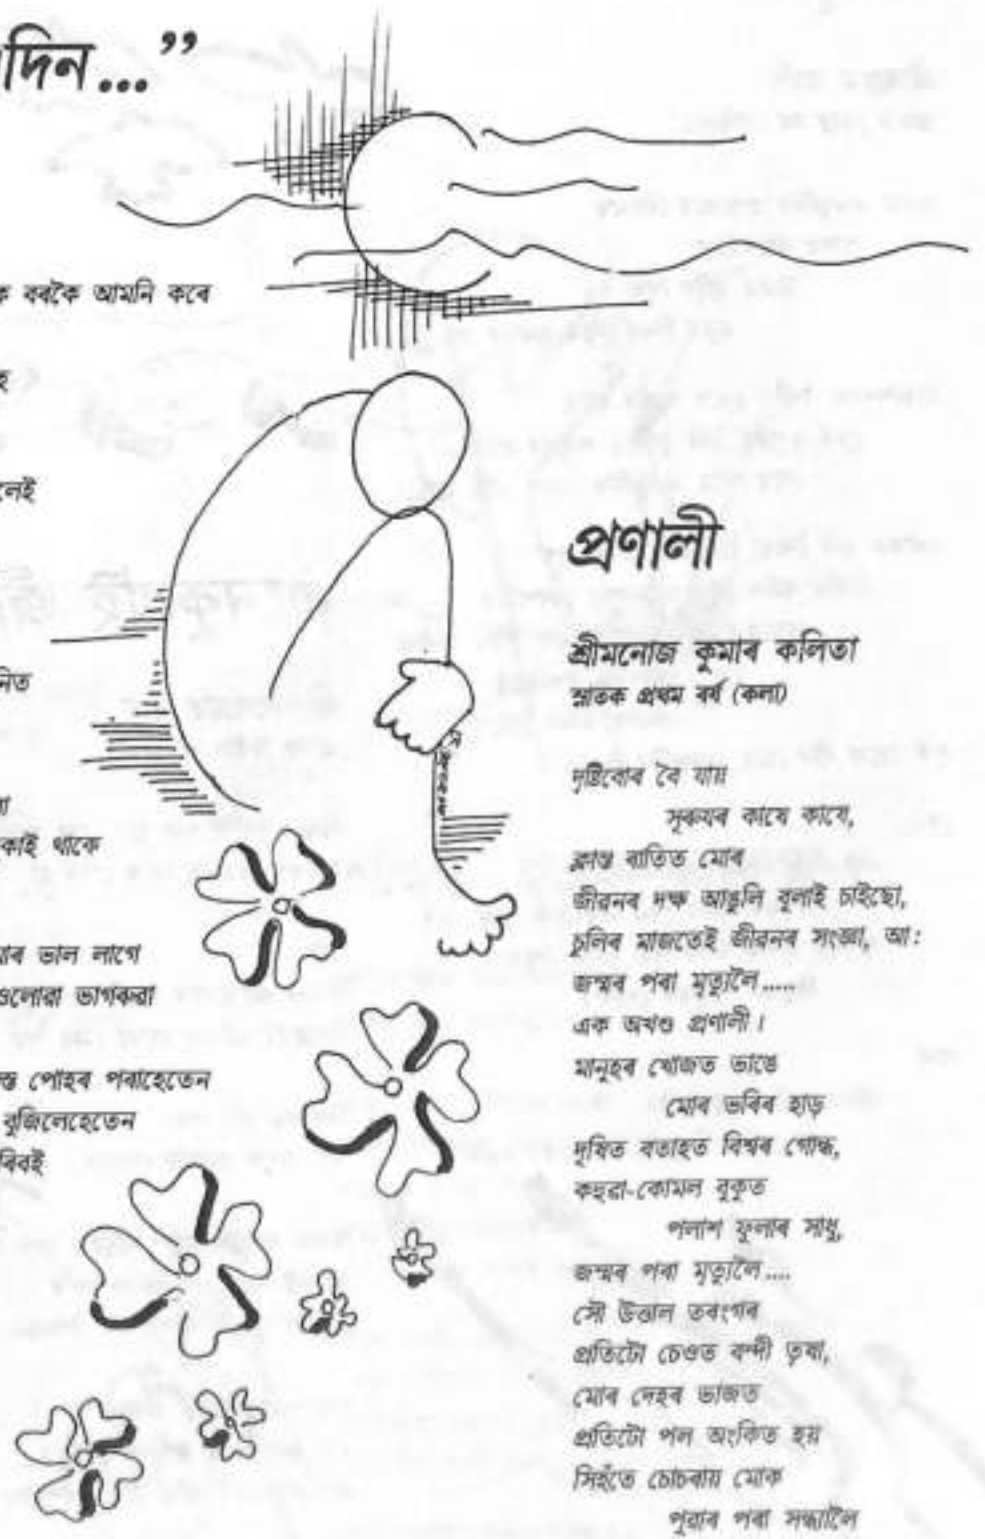 দিন...”
বৰকৈ আমনি কৰে
হ
লেই
নিত
া
কাই থাকে
াৰ ভাল লাগে
ওলোৱা ভাগৰুৱা
পোহৰ পৰাহেতেন
বুজিলেহেতেন
ৰিবই
প্ৰণালী
শ্ৰীমনোজ কুমাৰ কলিতা
স্নাতক প্ৰথম বৰ্ষ (কলা)
দৃষ্টিবোৰ বৈ যায়
সূৰুযৰ কাষে কাষে,
ক্লান্ত ৰাতিত মোৰ
জীৱনৰ দক্ষ আঙুলি বুলাই চাইছো,
চুলিৰ মাজতেই জীৱনৰ সংজ্ঞা, আ:
জন্মৰ পৰা মৃত্যুলৈ.....
এক অখণ্ড প্ৰণালী।
মানুহৰ খোজত ভাঙে
মোৰ ভৰিৰ হাড়
দূষিত বতাহত বিশ্বৰ গোন্ধ,
কহুৱা-কোমল বুকুত
পলাশ ফুলাৰ সাধু,
জন্মৰ পৰা মৃত্যুলৈ....
সৌ উত্তাল তৰংগৰ
প্ৰতিটো চেওত বন্দী তৃষা,
মোৰ দেহৰ ভাজত
প্ৰতিটো পল অংকিত হয়
সিহঁতে চোচৰায় মোক
পুৱাৰ পৰা সন্ধ্যালৈ